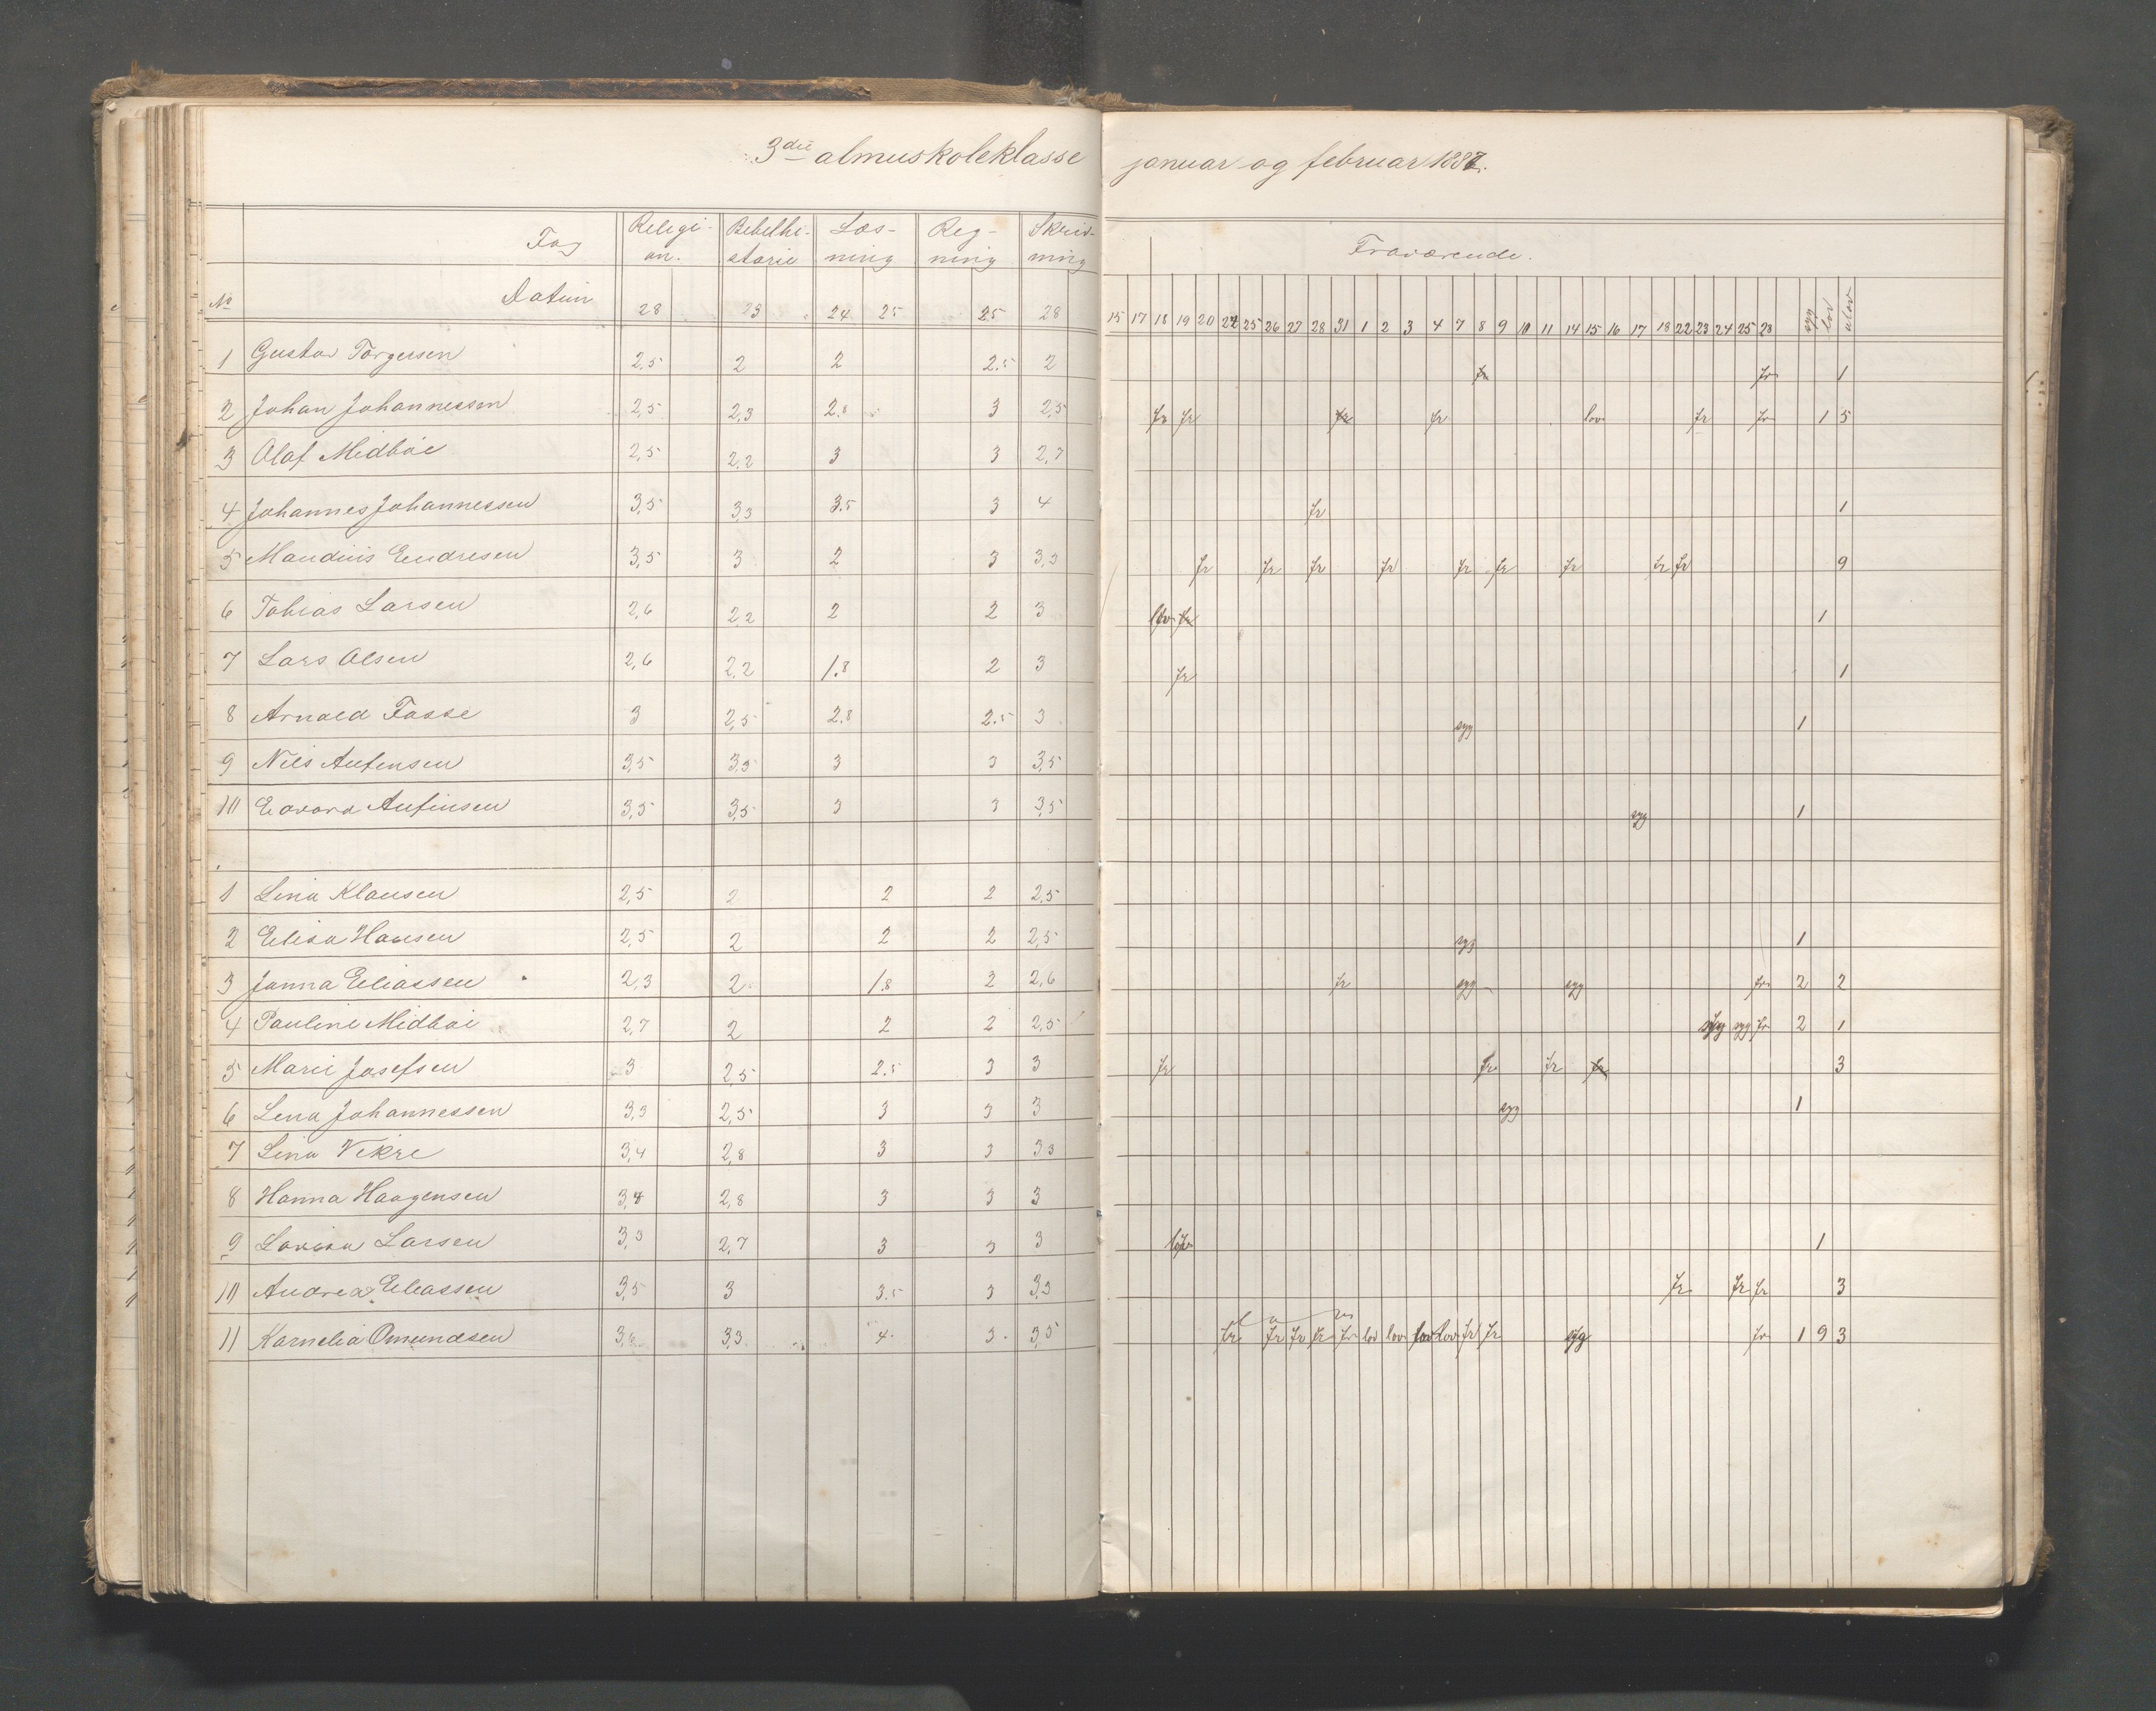 3die almuskoleklasse januar og februar 1887.
Fag Religi- Bibelhi- Læs- Reg- Skriv-
on. storie ning ning ning Fraværende.
Datum 28 23 24 25 25 28
No 15 17 18 19 20 24 25 26 27 28 31 1 2 3 4 7 8 9 10 11 14 15 16 17 18 22 23 24 25 28 syg lov ulov
1 Gustav Torgersen 2,5 2 2 2.5 2 fr fr 1
2 Johan Johannessen 2,5 2,3 2.8 3 2,5 fr fr fr fr lov fr fr 1 5
3 Olaf Midböe 2,5 2,2 3 3 2,7
4 Johannes Johannessen 3,5 3,3 3.5 3 4 fr 1
5 Maudius Endresen 3,5 3 2 3 3,3 fr fr fr fr fr fr fr fr fr 9
6 Tobias Larsen 2,6 2,2 2 2 3 lov fr 1
7 Lars Olsen 2,6 2,2 1.8 2 3 fr 1
8 Arnold Fosse 3 2,5 2.8 2.5 3 syg 1
9 Nils Aufensen 3,5 3,5 3 3 3,5
10 Edvard Aufinsen 3,5 3,5 3 3 3,5 syg 1
1 Lina Klausen 2,5 2 2 2 2,5
2 Elisa Hansen 2,5 2 2 2 2,5 syg 1
3 Janna Eliassen 2,3 2 1.8 2 2,6 fr syg syg fr 2 2
4 Pauline Midböe 2,7 2 2 2 2,5 syg syg fr 2 1
5 Marie Josefsen 3 2,5 2.5 3 3 fr fr fr fr 3
6 Lena Johannessen 3,3 2,5 3 3 3 syg 1
7 Lina Vikre 3,4 2,8 3 3 3,3
8 Hanna Haagensen 3,4 2,8 3 3 3
9 Lovisa Larsen 3,3 2,7 3 3 3 lov 1
10 Andrea Eliassen 3,5 3 3.5 3 3,3 fr fr fr 3
11 Karnelia Omundsen 3,6 3,3 4 3 3,5 fr fr fr fr fr lov lov lov lov fr fr syg fr 1 9 3